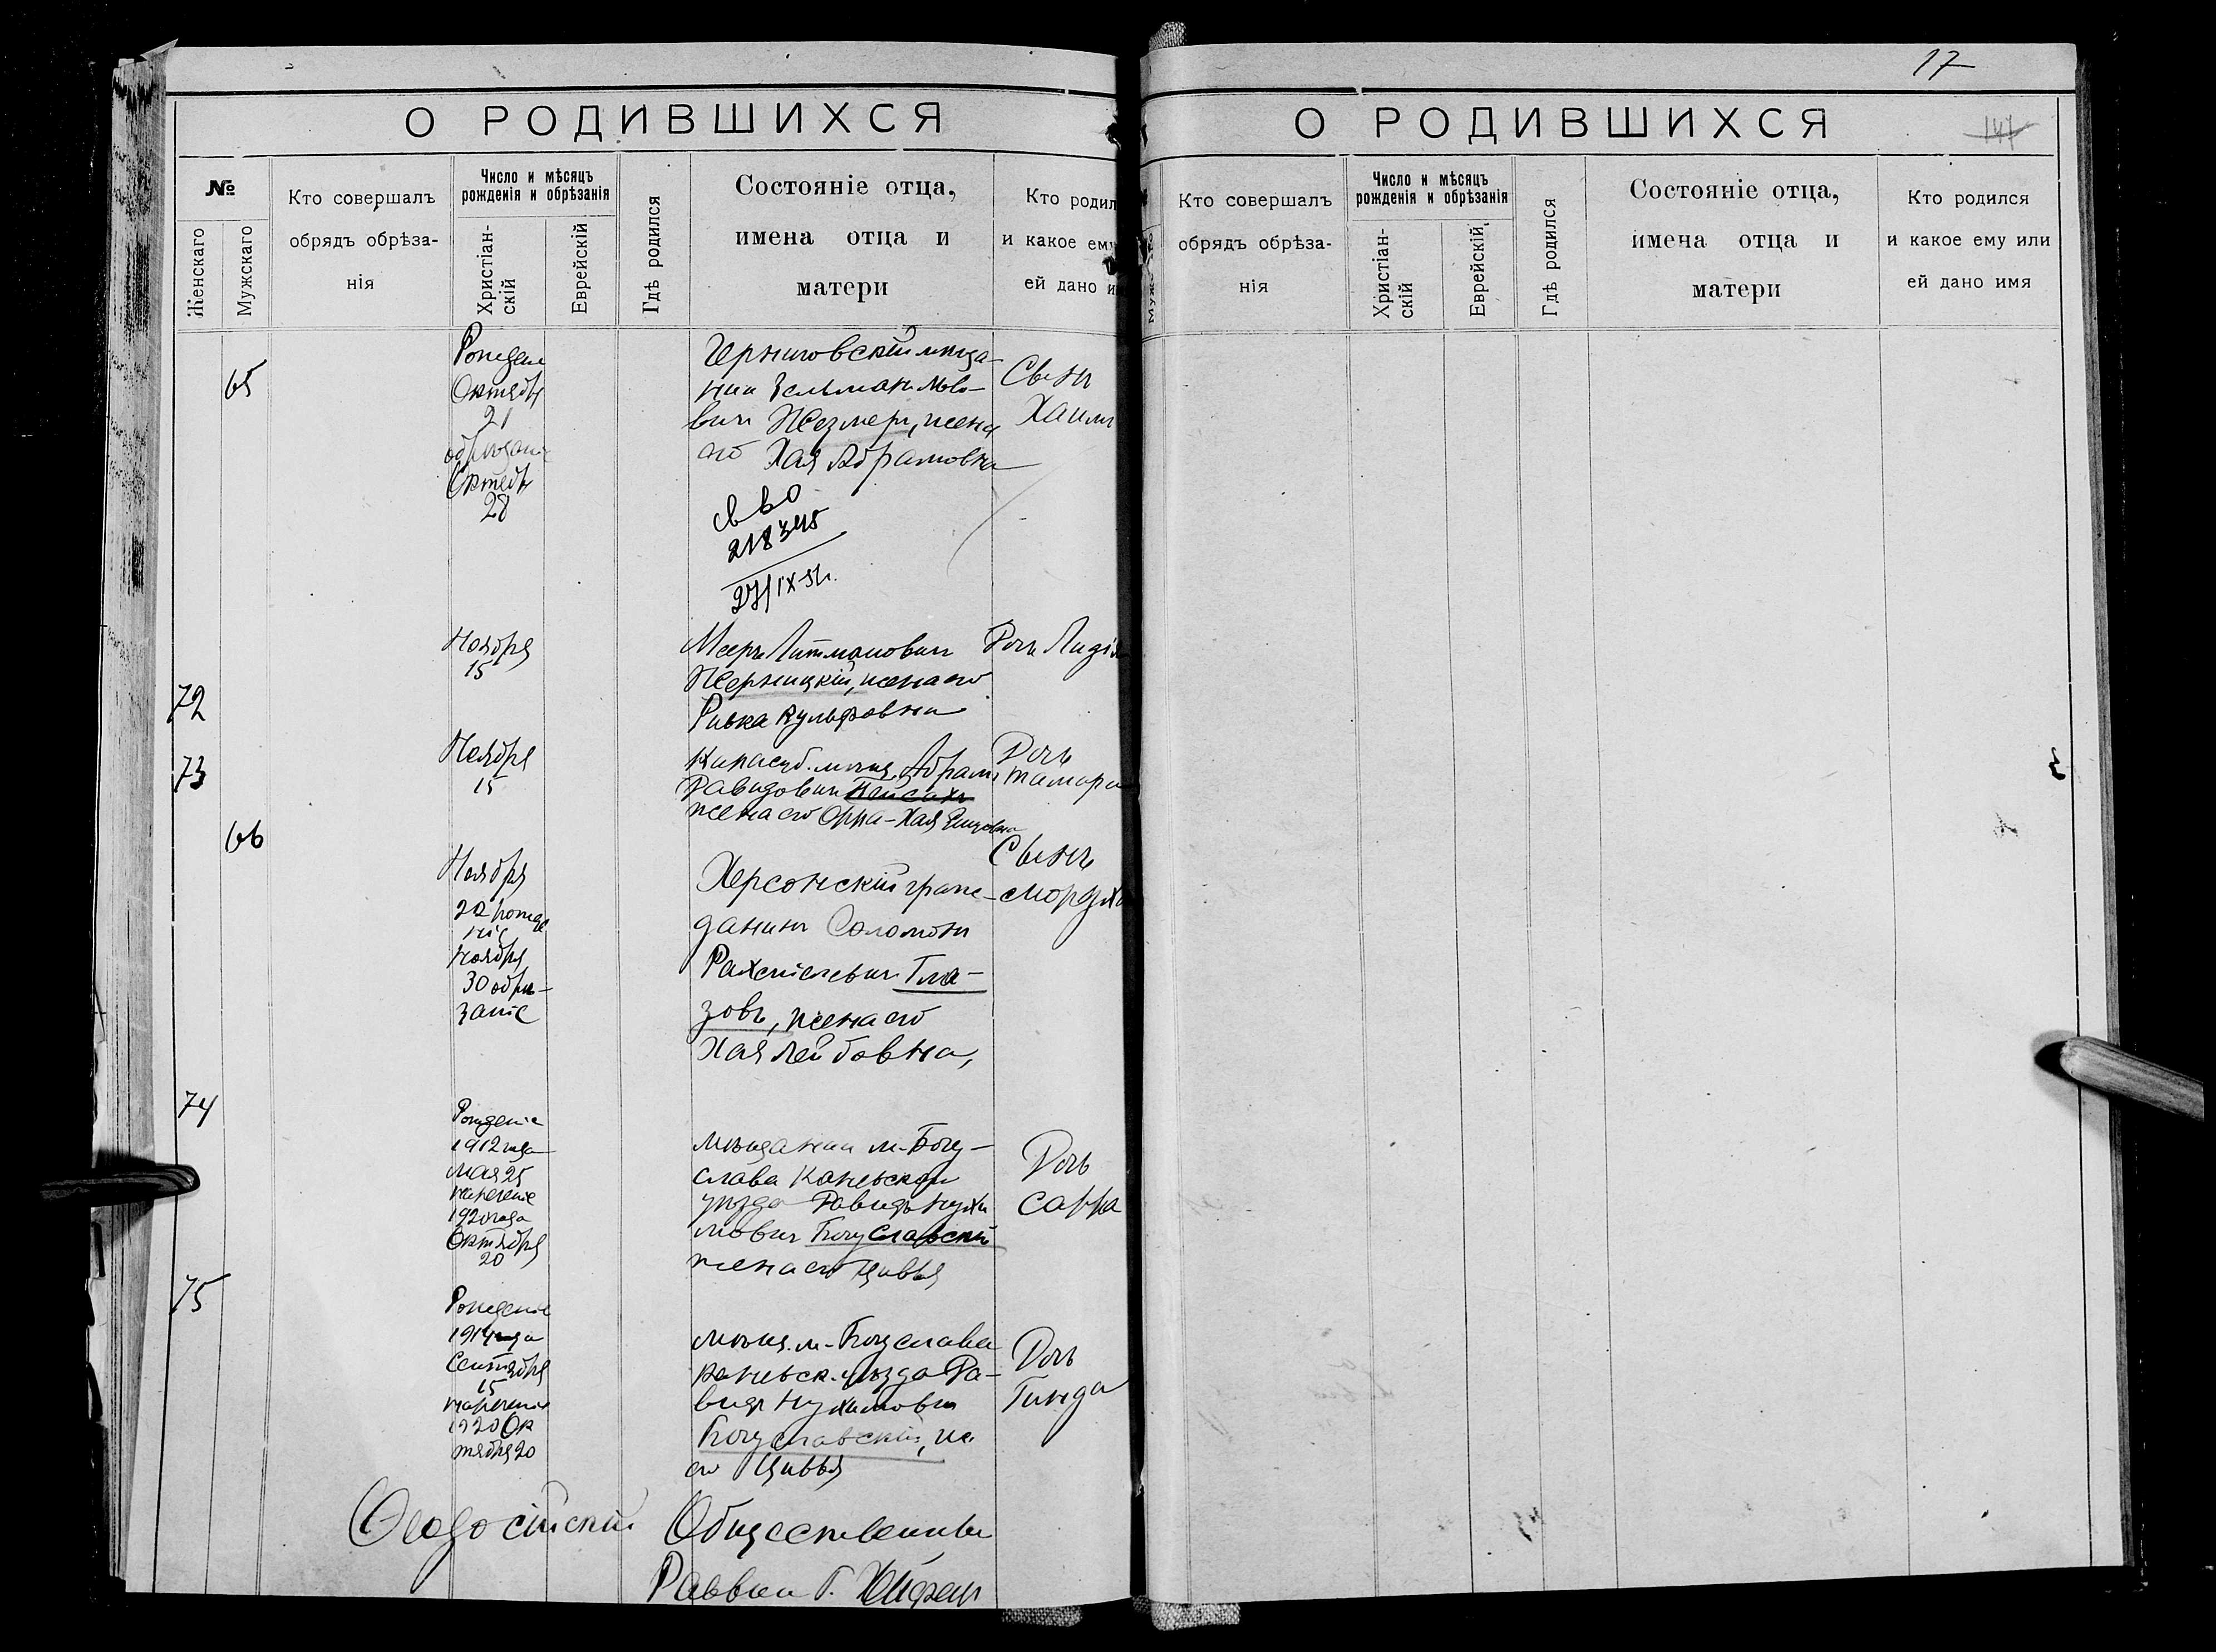 17
О РОДИВШИХСЯ
№
Женскаго
Мужскаго
Кто совершалъ
обрядъ обрѣза-
нія
Число и мѣсяцъ
рожденія и обрѣзанія
Христіан-
скій
Еврейскій
Гдѣ родился
Состояніе отца,
имена отца и
матери
Кто родил
и какое ему
ей дано и
65
Октября
21
Октября
28
Черниговскій мѣща-
нин Зельман
вичъ Жезмеръ, жена
его Хая Абрамовна
Сынъ
Хаимъ
218345
27/IX
72
Ноября
15
Мееръ Литманович
Жерницкій, жена его
Ривка Вульфовна
Дочь Лидія
73
Ноября
15
Карасуб. мѣщ. Абрам
Давидович Пейсахъ
жена его Хая
Дочь
Тамара
66
Ноября
22 рожде
ніе
Ноября
30 обрѣ-
заніе
Херсонскій граж-
данинъ Соломонъ
Гла-
зовъ, жена его
Хая Лейбовна,
Сынъ
Мордхе
74
Рожденіе
1912 года
мая 25
нареченіе
1920 года
Октября
20
мѣщанин м. Богу-
слава Каневскаго
уѣзда Давидъ Нухи
мович Богуславскій
жена его Цивья
Дочь
Сарра
75
Рожденіе
1914 года
Сентября
15
нареченіе
1920 Ок
тября 20
мѣщ. м. Богуслава
Каневск. уѣзда Да-
видъ Нухимович
Богуславскій, же
его Цивья
Дочь
Гинда
Ѳеодосійскій Общественный
Раввин Г.
О РОДИВШИХСЯ
147
Кто совершалъ
обрядъ обрѣза-
нія
Число и мѣсяцъ
рожденія и обрѣзанія
Христіан-
скій
Еврейскій
Гдѣ родился
Состояніе отца,
имена отца и
матери
Кто родился
и какое ему или
ей дано имя